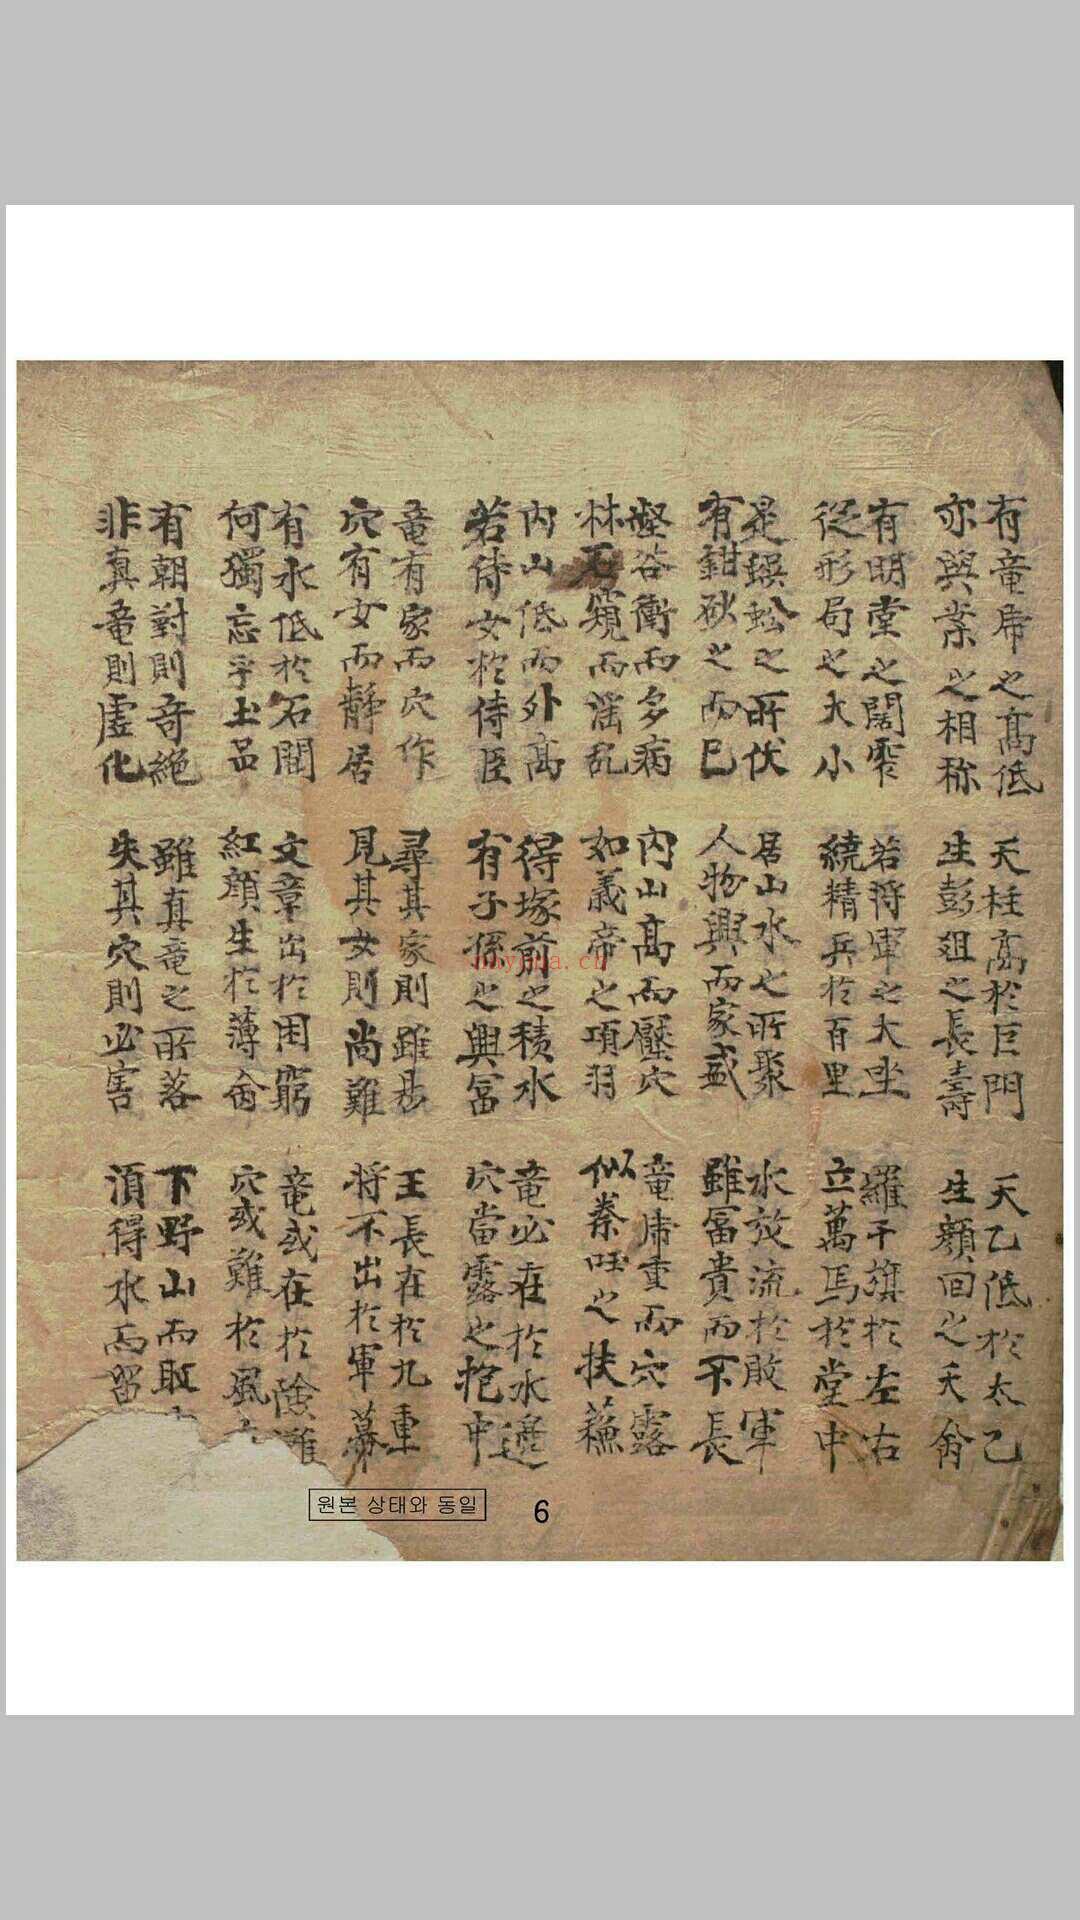 有竜席之高低
亦與案之相称
天柱高於巨門
生彭祖之長壽
天乙低於太乙
生顔回之夭命
有明堂之闊窄
從形局之大小
若將軍之大坐
繞精兵於百里
羅千旗於左右
立萬馬於堂中
是蜈蚣之所伏
有鉗砂之而已
居山水之所聚
人物興而家盛
水放流於敗軍
雖冨貴而不長
壑谷衝而多病
林石窺而滛乱
內山高而壓穴
如義帝之項羽
竜席重而穴露
似秦旺之扶蘓
內山低而外高
若侍女於侍臣
得塚前之積水
有子孫之興冨
竜必在於水邊
穴當露之抱中
竜有家而穴作
穴有女而靜居
尋其家則雖易
見其女則尚難
王長在於九重
将不出於軍幕
有水低於石間
何獨忘乎土品
文章出於困窮
紅顔生於薄命
竜或在於險灘
穴或難於風
有朝對則奇絶
非真竜則虛化
雖真竜之所落
失其穴則必害
下野山而取
湏得水而留
원본 상태와 동일
6